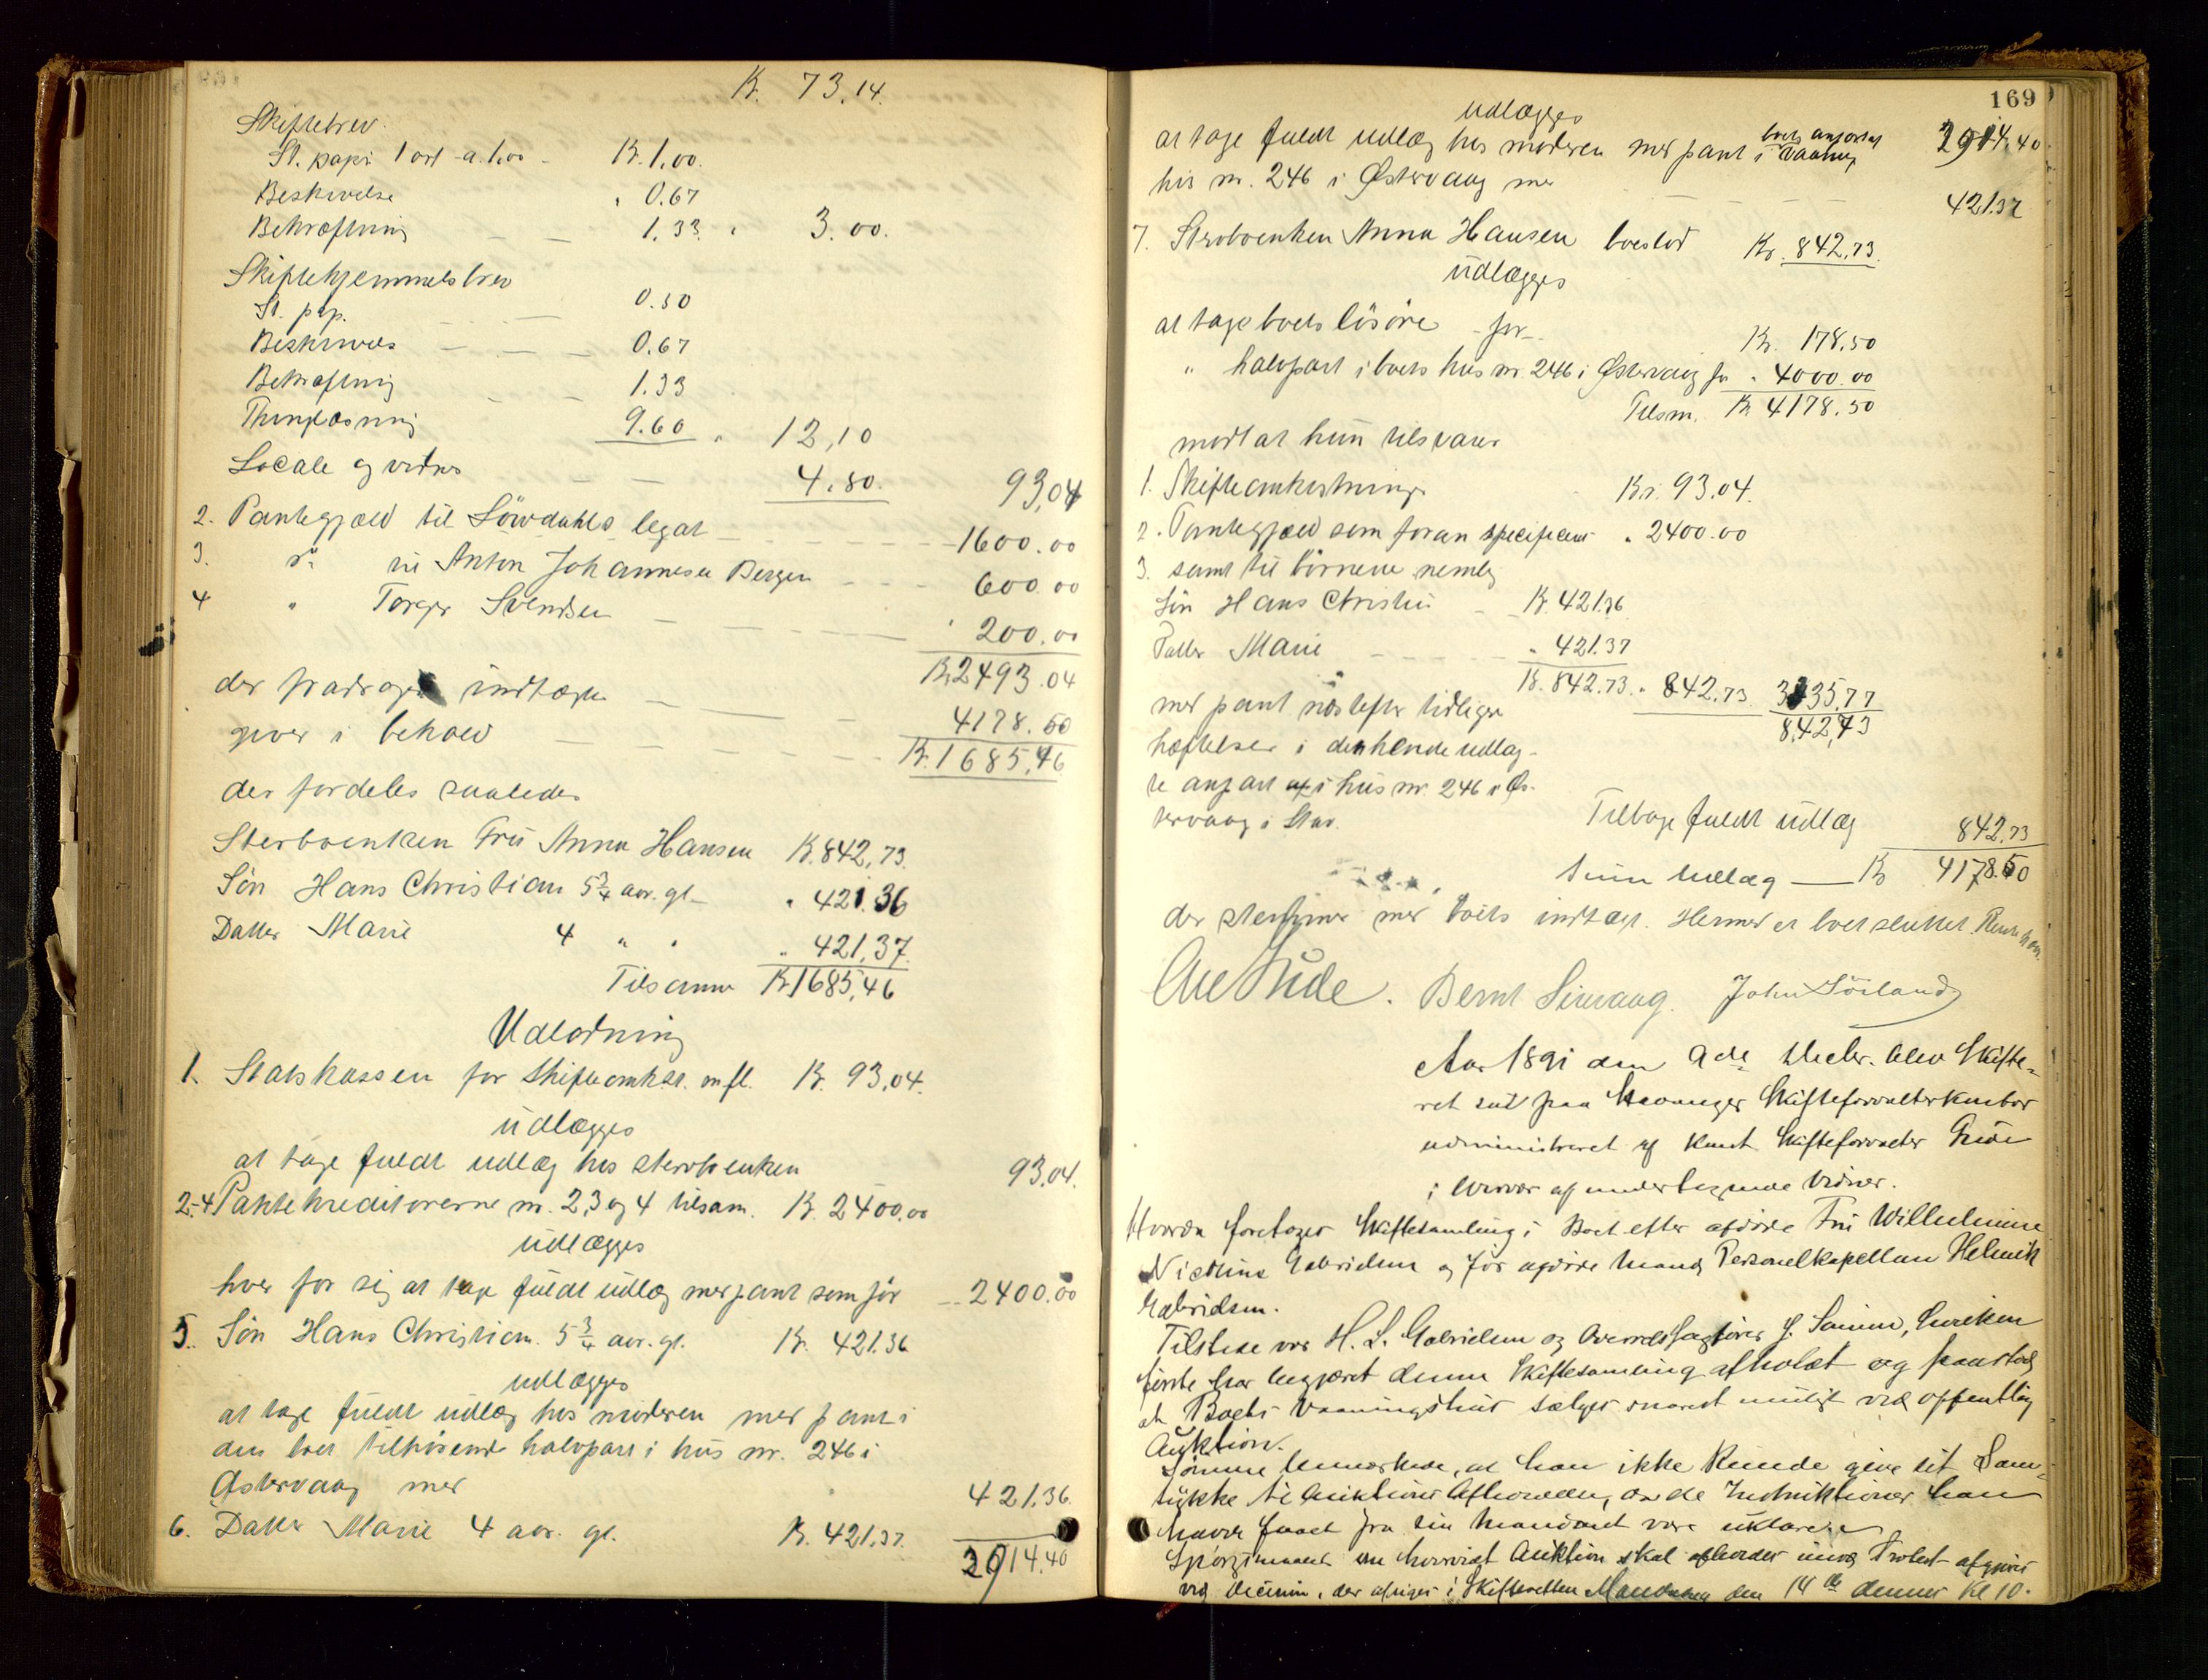 Kr. 73.14.
Skiftebrev
St. papir 1 ark a. 1.00 - Kr. 1.00.
Beskrivelse " 0.67
Bekræftning - - 1.33. " 3.00.
Skiftehjemmelsbrev
St. pap. - - 0.50
Beskrivels - - - 0.67
Bekræftning - - 1.33
Thinglæsning 9.60 " 12,10
Locale og vidner - - 4.80. 93,04
2. Pantegjæld til Löwdahls legat - - - 1600.00
3. do til Anton Johannesen Bergen - - - 600.00
4 " Torger Svendsen - - - 200.00
Kr. 2493.04
der fradraget indtægten - - - 4178.50
giver i behold - - - Kr. 1685,46
der fordeles saaledes
Sterboenken Fru Anna Hansen Kr. 842,73.
Sön Hans Christian 5 3/4 aar. gl. - " 421.36
Datter Marie 4 " " " 421,37.
Tilsamm Kr. 1685,46
Udlodning
1. Statskassen for Skifteomkst. m fl. Kr. 93.04.
udlægges
at tage fuldt udlæg hos sterboenken 93.04.
2-4 Pantekreditorerne nr. 2,3 og 4 tilsam. Kr. 2400.00
udlægges
hver for sig at tage fuldt udlæg med pant som för - 2400.00
5. Sön Hans Christian. 5 3/4 aar. gl. Kr. 421.36
udlægges
at tage fuldt udlæg hos moderen med pant i
den boet tilhörende halvpart i hus nr. 246 i
Østervaag med 421.36.
6. Datter Marie 4 aar. gl. Kr. 421.37. 2914.40
169
udlægges
at tage fuldt udlæg hos moderen med pant i boets anpart af 2914.40
hus nr. 246 i Østervaag med - - - 421.37
7. Sterboenken Anna Hansen boeslod Kr. 842,73.
udlægges
at tage boets lösöre - for - Kr. 178.50
" halvpart i boets hus nr. 246 i Østervaag for " 4000.00
Tilsm. Kr. 4178.50
modt at hun tilsvarer
1. Skifteomkostninger Kr. 93.04.
2. Pantegjæld som foran specificeret " 2400.00
3. samt til börnene nemlig
Sön Hans Christian - Kr. 421.36
Datter Marie - - - " 421.37
Kr. 842.73. " 842.73 3335,77
med pant næstefter tidligere 842,73
hæftelser i den hende udlag-
te anpart i hus nr. 246 i Øs-
tervaag i Stav. Tilbage fuldt udlæg 842,73
Sum Udlæg - Kr 4178.50
der stemmer med boets indtægt. Hermed er boet sluttet.
Bernt Sirevaag. John Sörland
Aar 1891 den 9de Decbr. blev Skifte-
ret sat paa Stavanger Skifteforvalterkontor
administreret af Const Skifteforvalter
i Overvær af undertegnede Vidner.
Hvorda foretoges Skiftesamling i Boet efter afdöde Fru Wilhelmine
Nicoline Gabrielsen og för afdöde Mand Personelkapellan Helmik
Gabrielsen.
Tilstede var H. L. Gabrielsen og Overretssagförer S. Sömme, hvilken
förste har begjæret denne Skiftesamling afholdt og paastod
at Boets Vaaningshus sælges snarest muligt ved offentlig
Auktion.
Sömme bemærkede, at han ikke kunde give sit Sam-
tykke til Auktions Afholdelse, da de Instruktioner han
havde faaet fra sin Mandant vare uklare.
Spörgsmaalet om hvorvidt Auktion skal afholdes imod Protest afgjöres
ved Decision, der afsiges i Skifteretten Mandag den 14de dennes Kl 10.